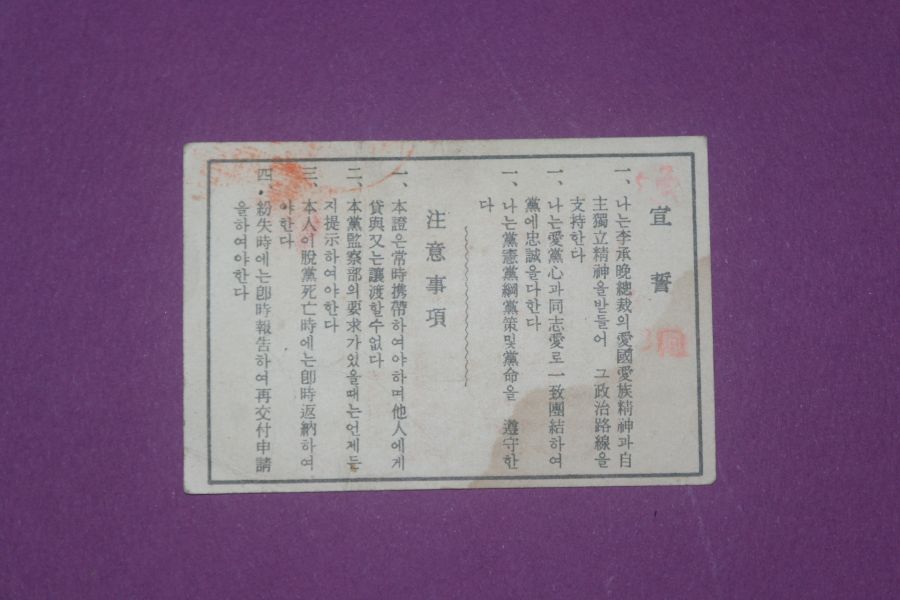 宣誓
一、나는李承晩總裁의愛國愛族精神과自
主獨立精神을받들어 그政治路線을
支持한다
一、나는愛黨心과同志愛로一致團結하여
黨에忠誠을다한다
一、나는黨憲黨綱黨策및黨命을 遵守한
다
注意事項
一、本證은常時携帶하여야하며他人에게
貸與又는讓渡할수없다
二、本黨監察部의要求가있을때는언제든
지提示하여야한다
三、本人이脫黨死亡時에는卽時返納하여
야한다
四・紛失時에는卽時報告하여再交付申請
을하여야한다